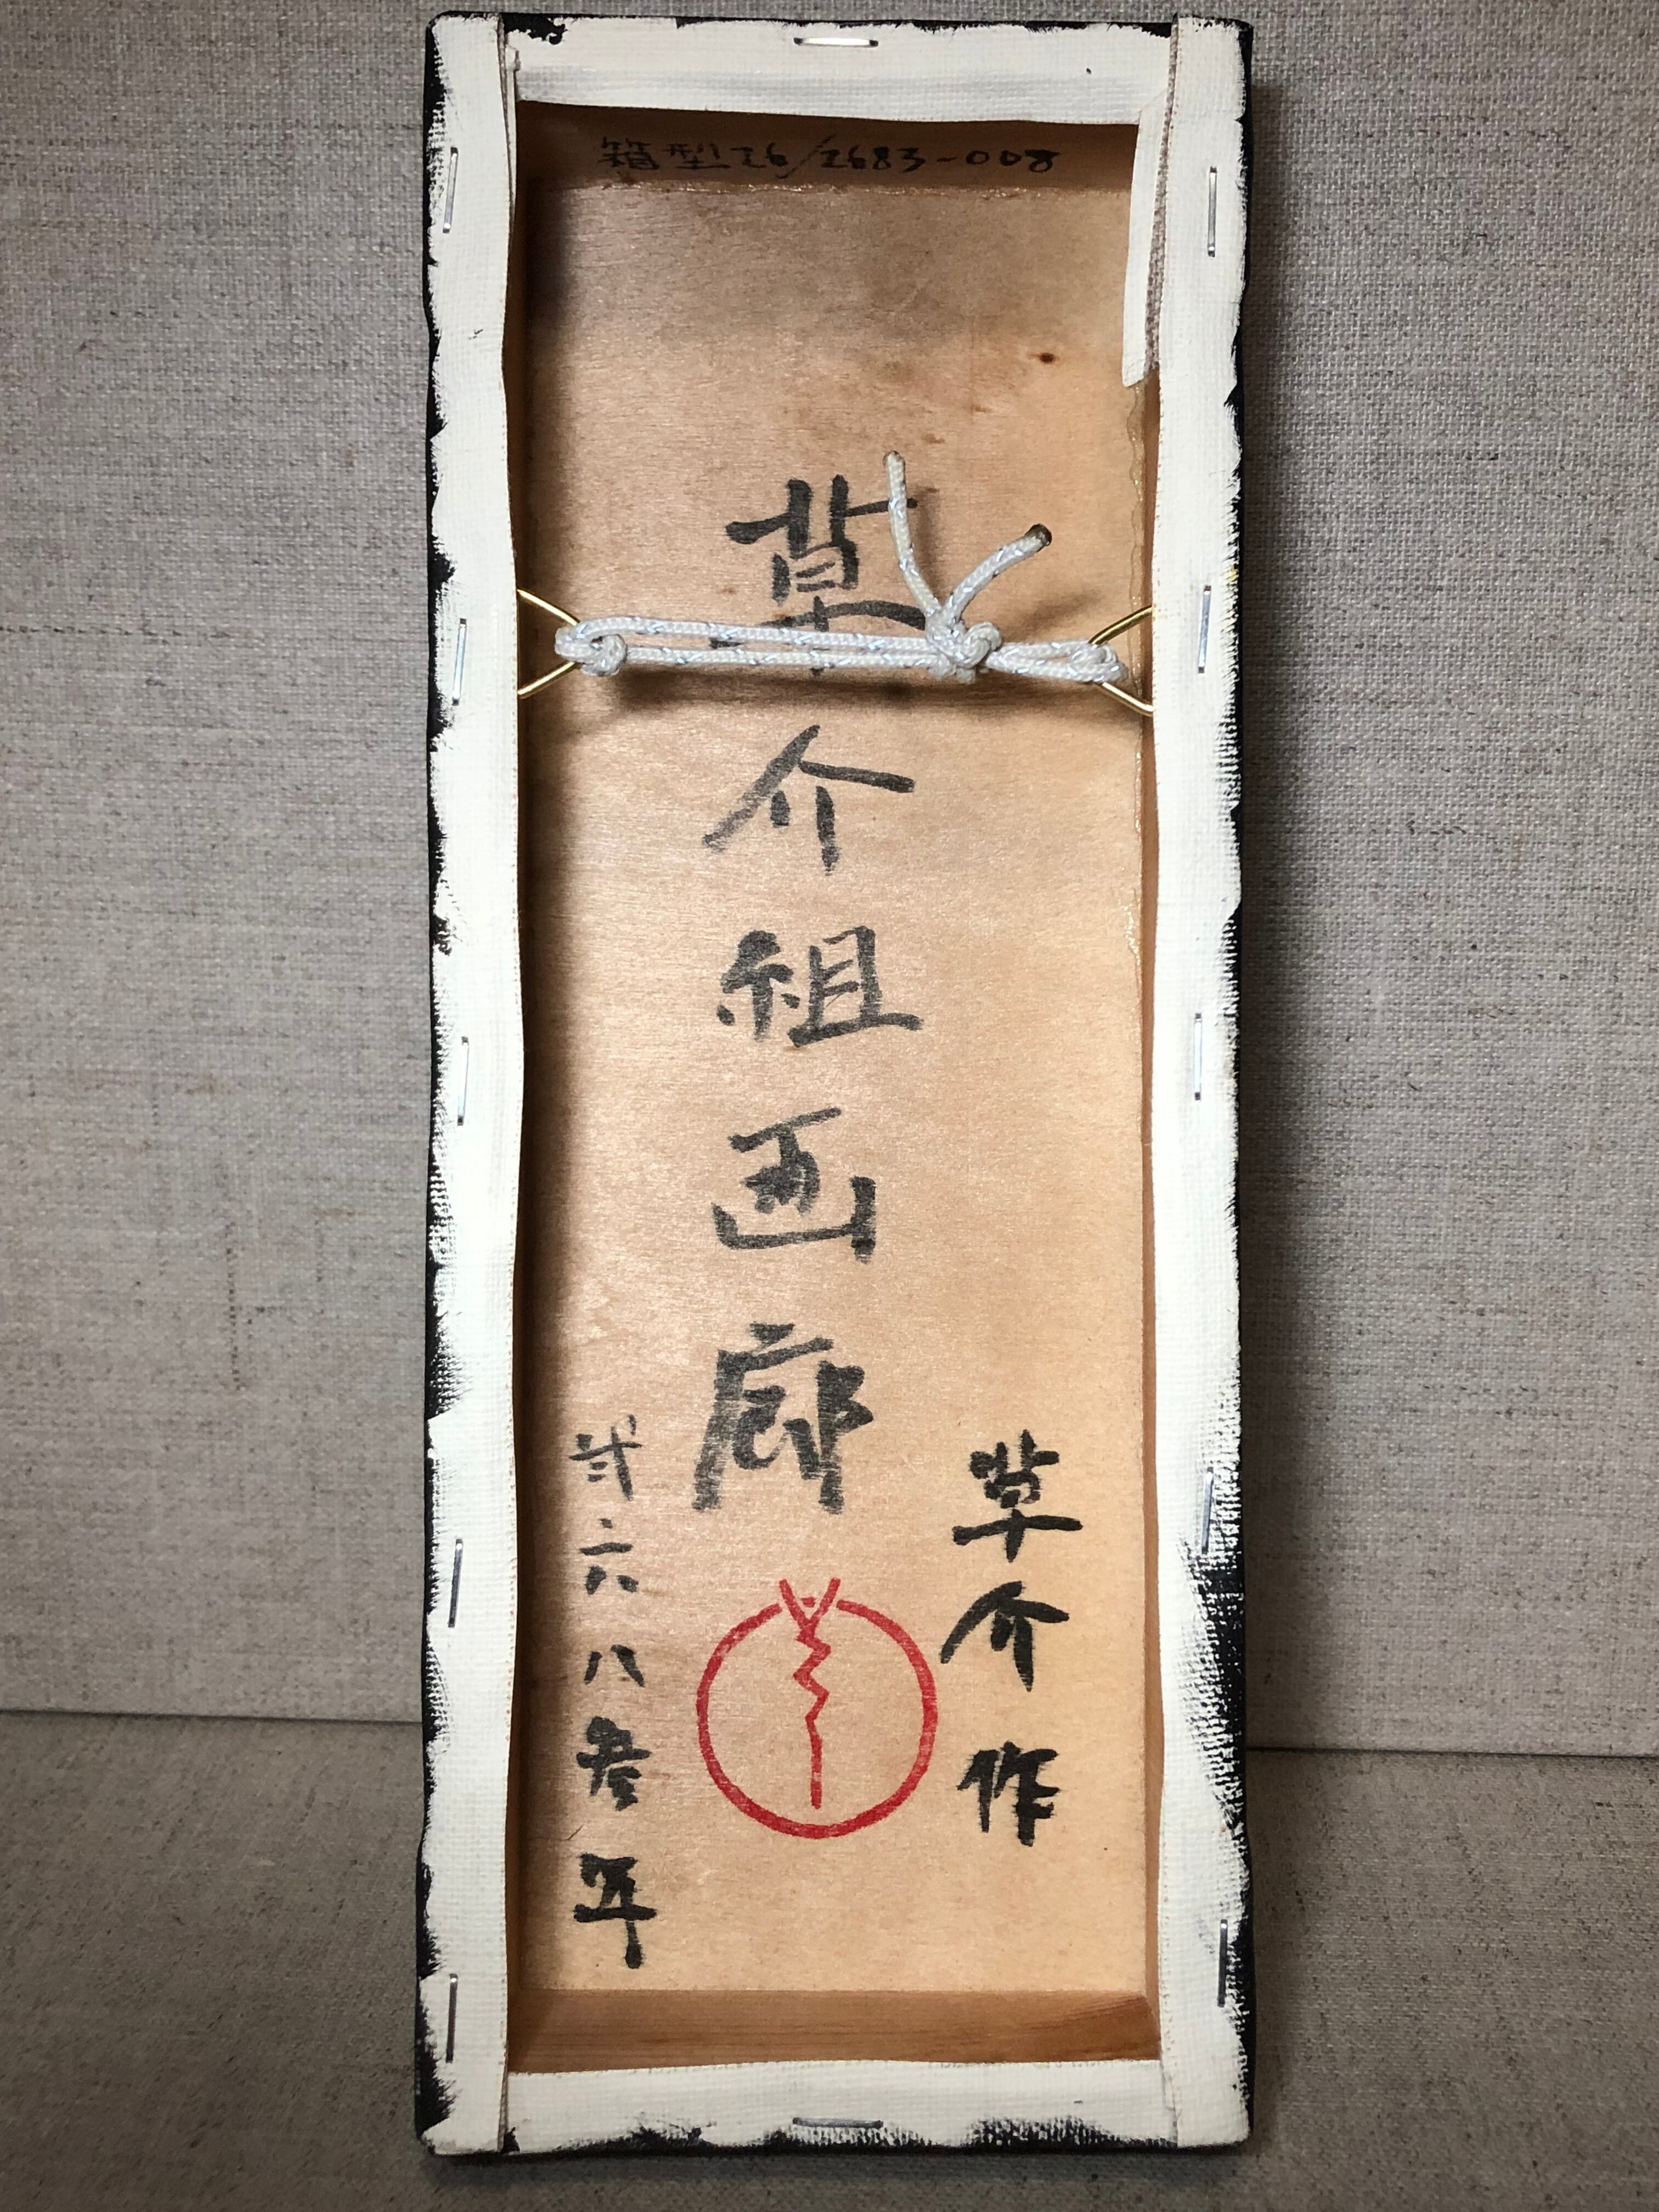 箱型26/2683-008
草介作
草介組画廊
弐六八参年